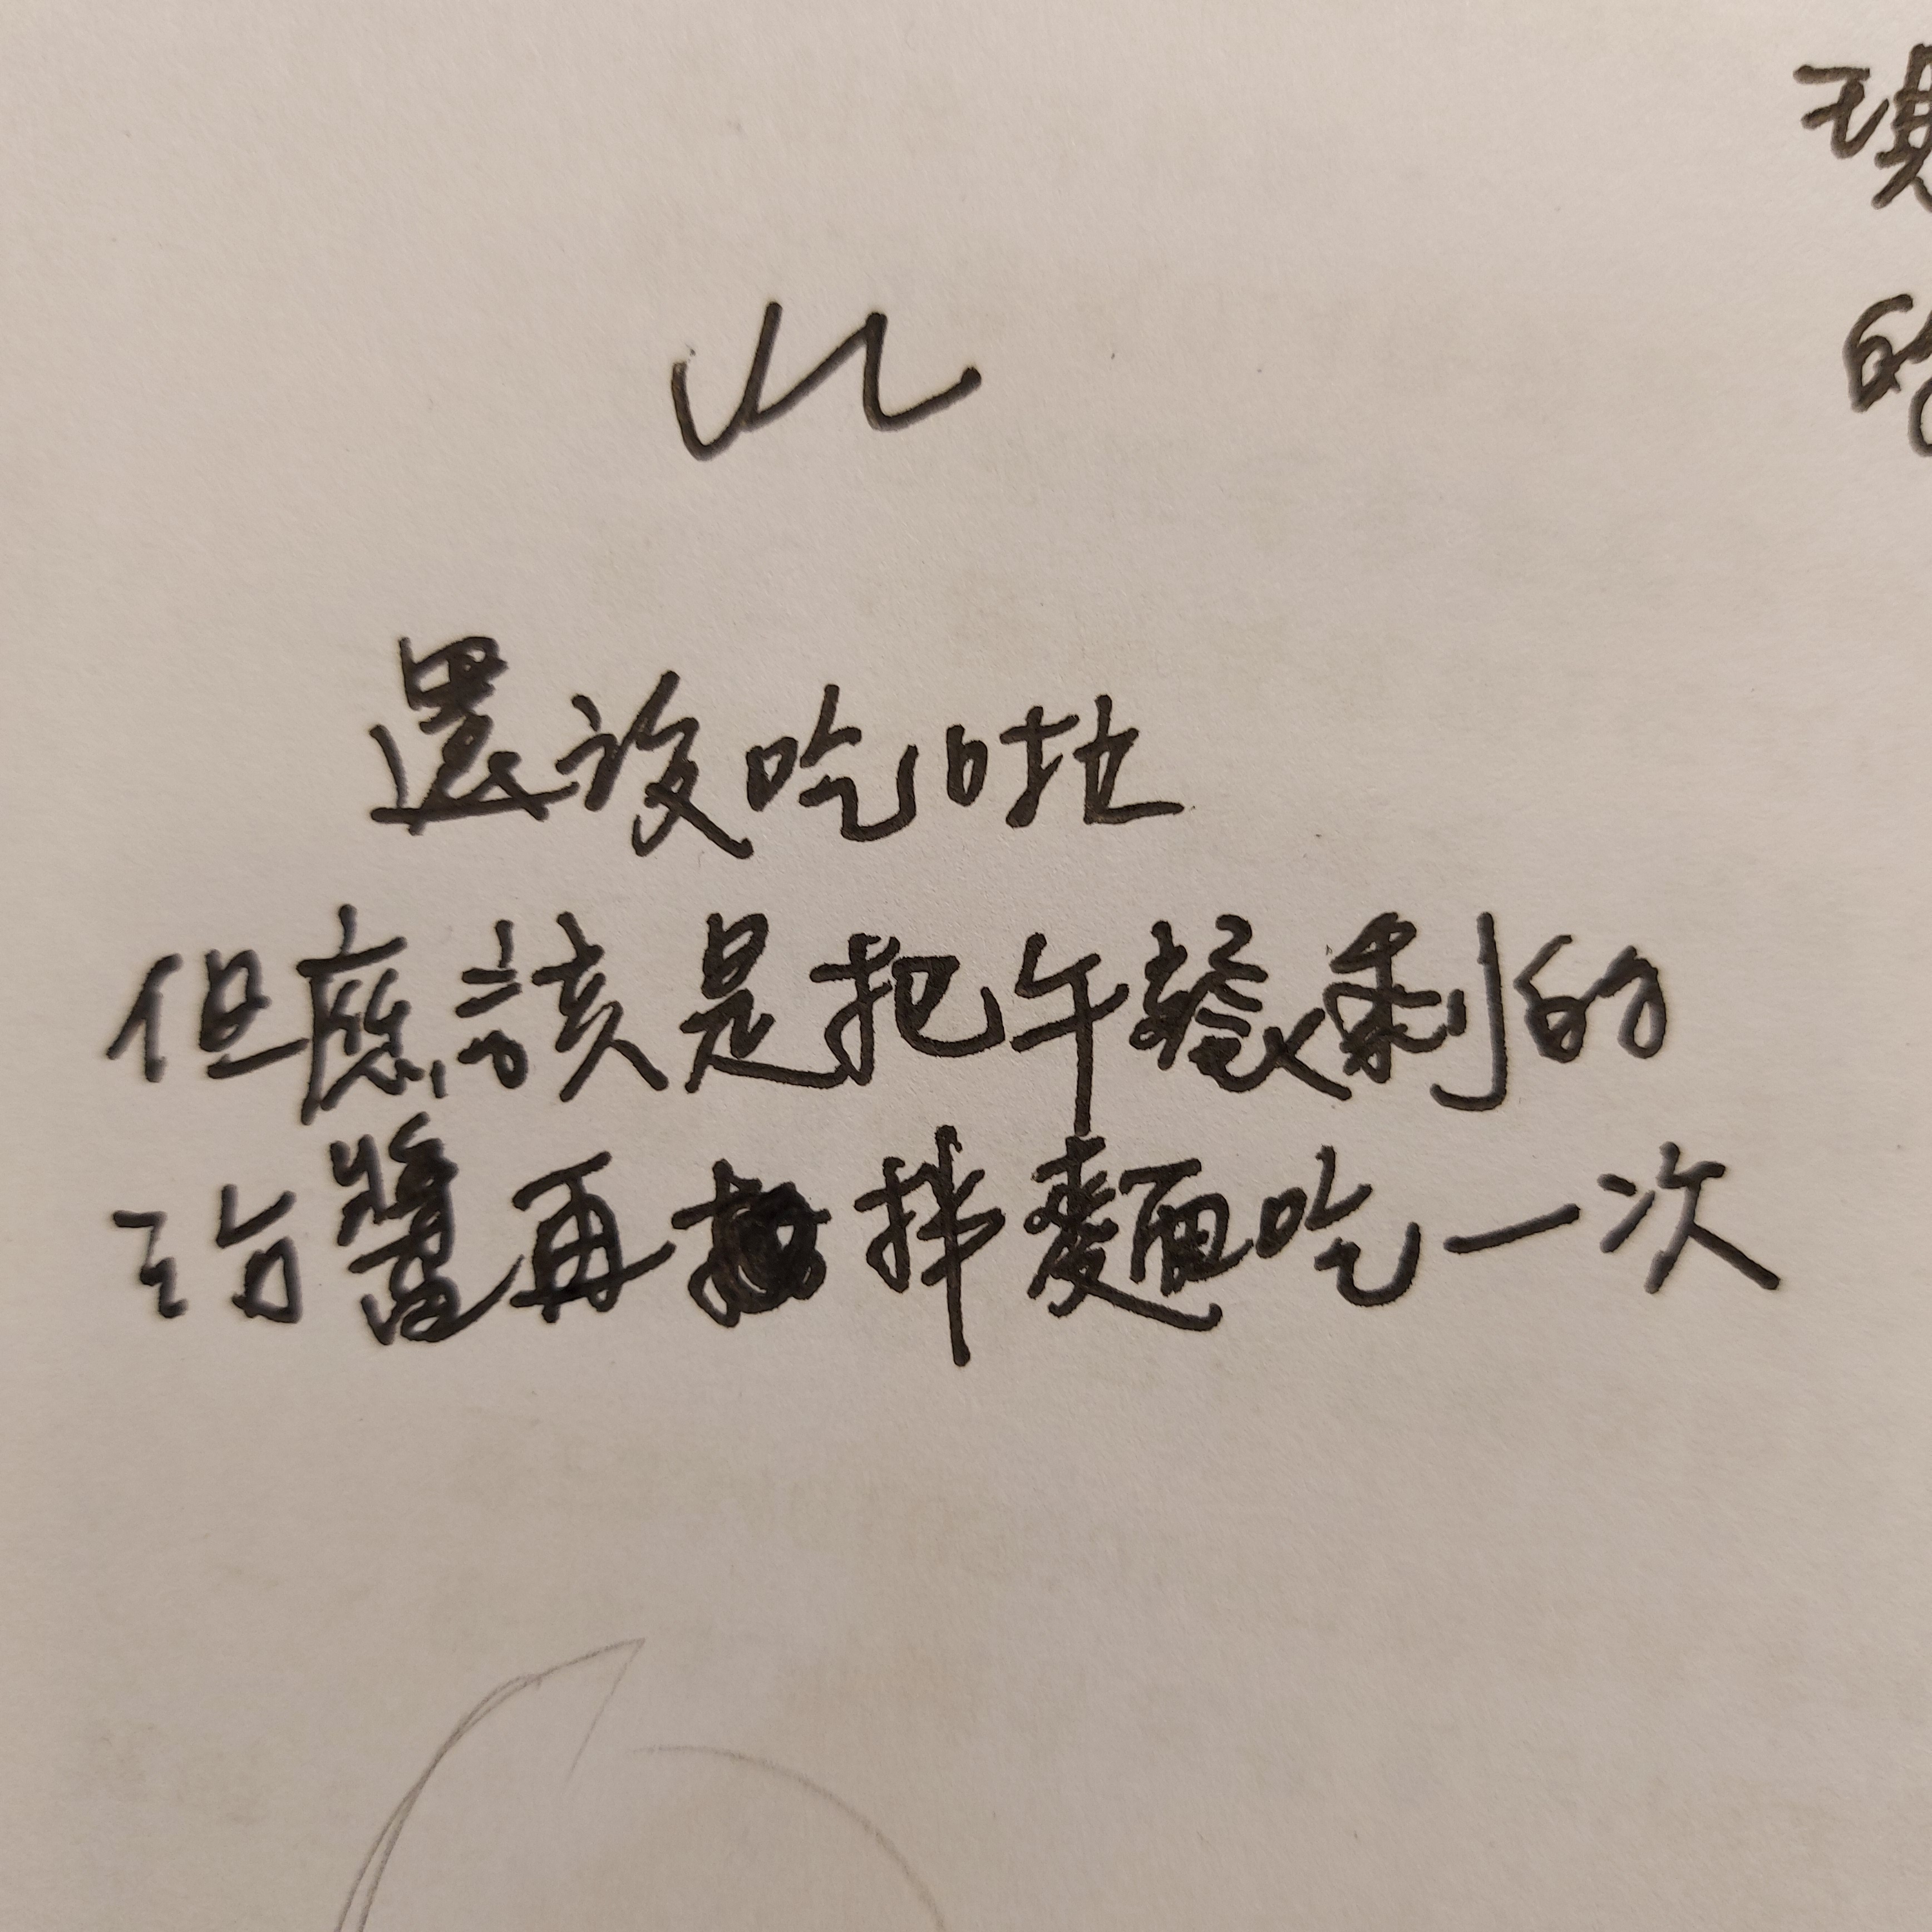 還沒吃啦
但應該是把午餐剩的
醬再拌麵吃一次
的